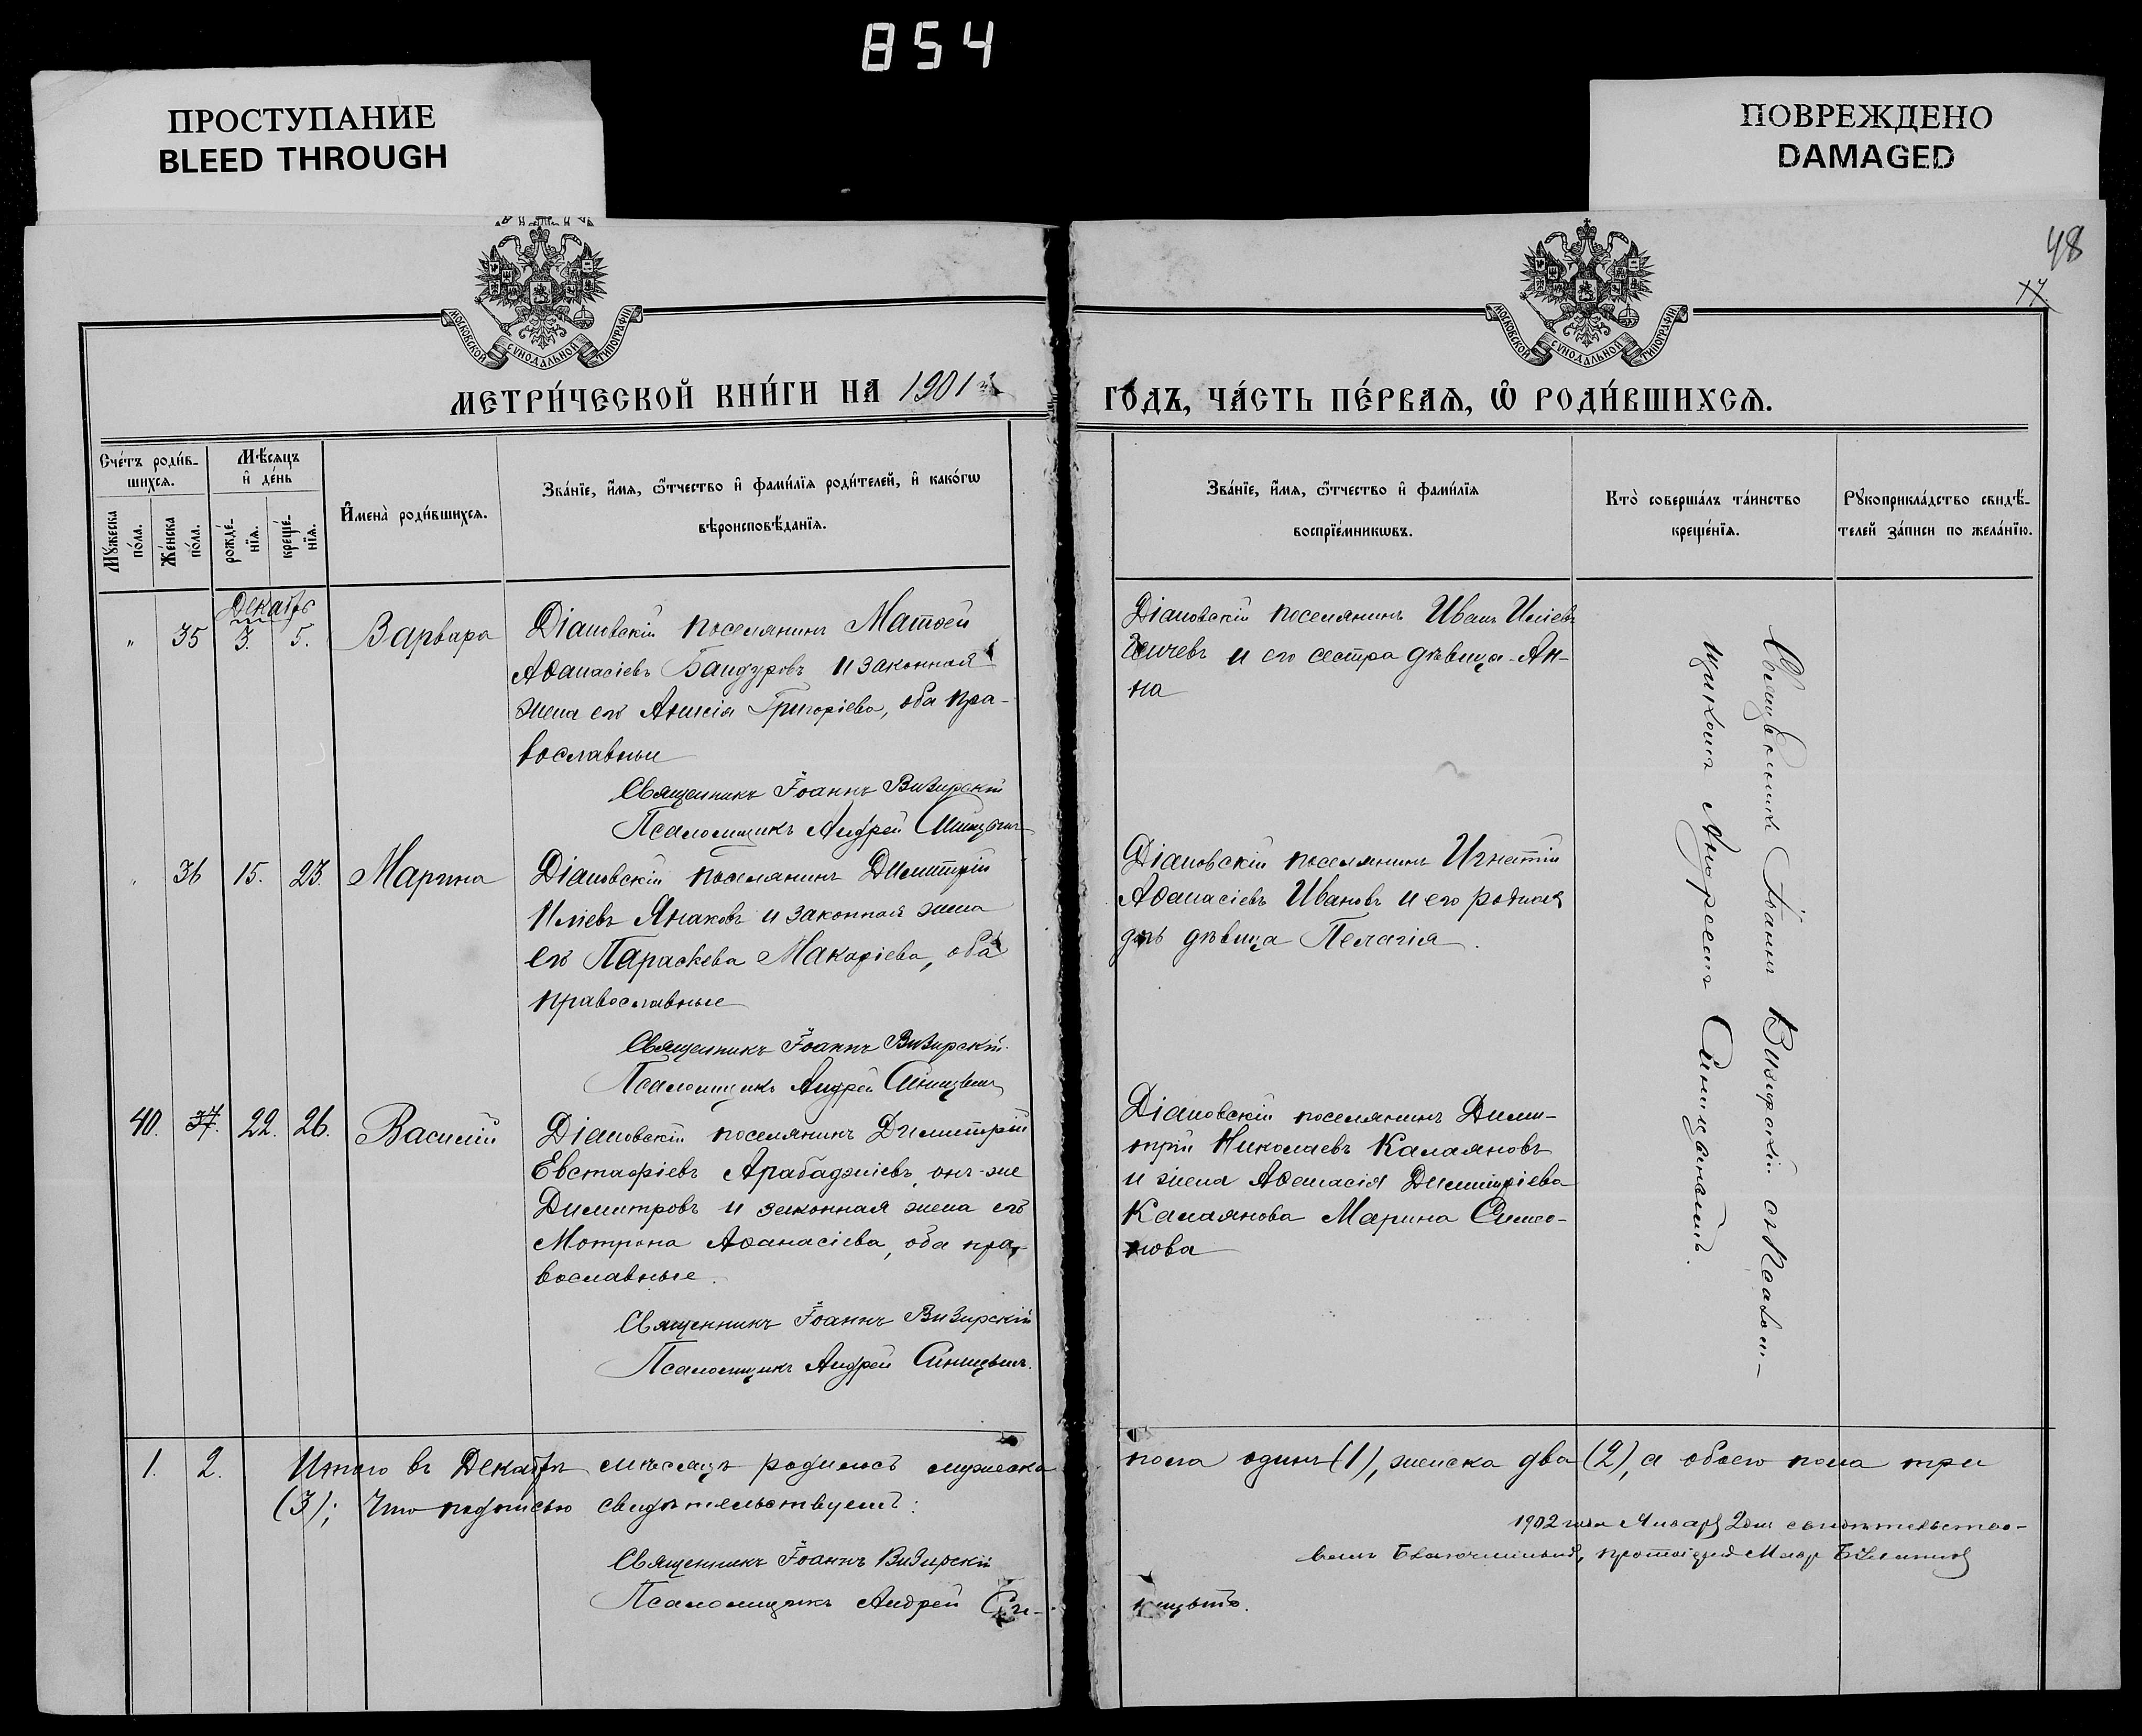 854
ПРОСТУПАНИЕ
BLEED THROUGH
ПОВРЕЖДЕНО
DAMAGED
48
МОСКОВСКОЙ СѴНОДАЛЬНОЙ ТИПОГРАФІИ
МОСКОВСКОЙ СѴНОДАЛЬНОЙ ТИПОГРАФІИ
МЕТРИ́ЧЕСКОЙ КНИ́ГИ НА 1901й
ГО́ДЪ, ЧА́СТЬ ПЕ́РВАЯ, Ѡ҆ РОДИ́ВШИХСЯ.
Сче́тъ роди́в-
шихся.
Мѣ́сяцъ
и҆ де́нь
Му́жеска
по́ла.
Же́нска
по́ла.
рожде́-
нїя.
креще́-
нїя.
И҆мена̀ роди́вшихся.
Зва́нїе, и҆́мя, ѻ҆́тчество и҆ фами́лїя роди́телей, и҆ како́гѡ
вѣроисповѣ́данїя.
Зва́нїе, и҆́мя, ѻ҆́тчество и҆ фами́лїя
воспрїе́мникѡвъ.
Кто̀ соверша́лъ та́инство
креще́нїя.
Рꙋкоприкла́дство свидѣ́-
телей за́писи по жела́нїю.
Декабрь
" 35 3. 5. Варвара
Діановскій поселянинъ Матѳей
Аѳанасіевъ Бандуровъ и законная
жена его Анисія Григоріева, оба пра-
вославные
Священникъ Іоаннъ Визирскій
Псаломщикъ Андрей Синицынъ
Діановскій поселянинъ Иванъ Иліевъ
и его сестра дѣвица Ан-
на
" 36 15. 23. Марина
Діановскій поселянинъ Димитрій
Иліевъ Янаковъ и законная жена
его Параскева Макаріева, оба
православные
Священникъ Іоаннъ Визирскій.
Псаломщикъ Андрей Синицынъ
Діановскій поселянинъ Игнатій
Аѳанасіевъ Ивановъ и его родная
дѣвица Пелагія.
40. 37. 22. 26. Василій
Діановскій поселянинъ Димитрій
Евстафіевъ Арабаджіевъ, онъ-же
Димитровъ и законная жена его
Мотрона Аѳанасіева, оба пра-
вославные.
Священникъ Іоаннъ Визирскій
Псаломщикъ Андрей Синицынъ.
Діановскій поселянинъ Дими-
трій Николаевъ Калаяновъ
и жена Аѳанасія Димитріева
Калаянова Марина Симео-
нова
Священникъ Іоаннъ Визирскій съ Псалом-
щикомъ Андреемъ Синицынымъ.
1. 2. Итого въ Декабрѣ мѣсяцѣ родилось мужеска
пола одинъ (1), женска два (2), а обоего пола три
(3); Что подписью свидѣтельствуемъ:
Священникъ Іоаннъ Визирскій
Псаломщикъ Андрей Си-
ницынъ.
1902 года Января 2 дня свидѣтельство-
валъ Благочинный, протоіерей